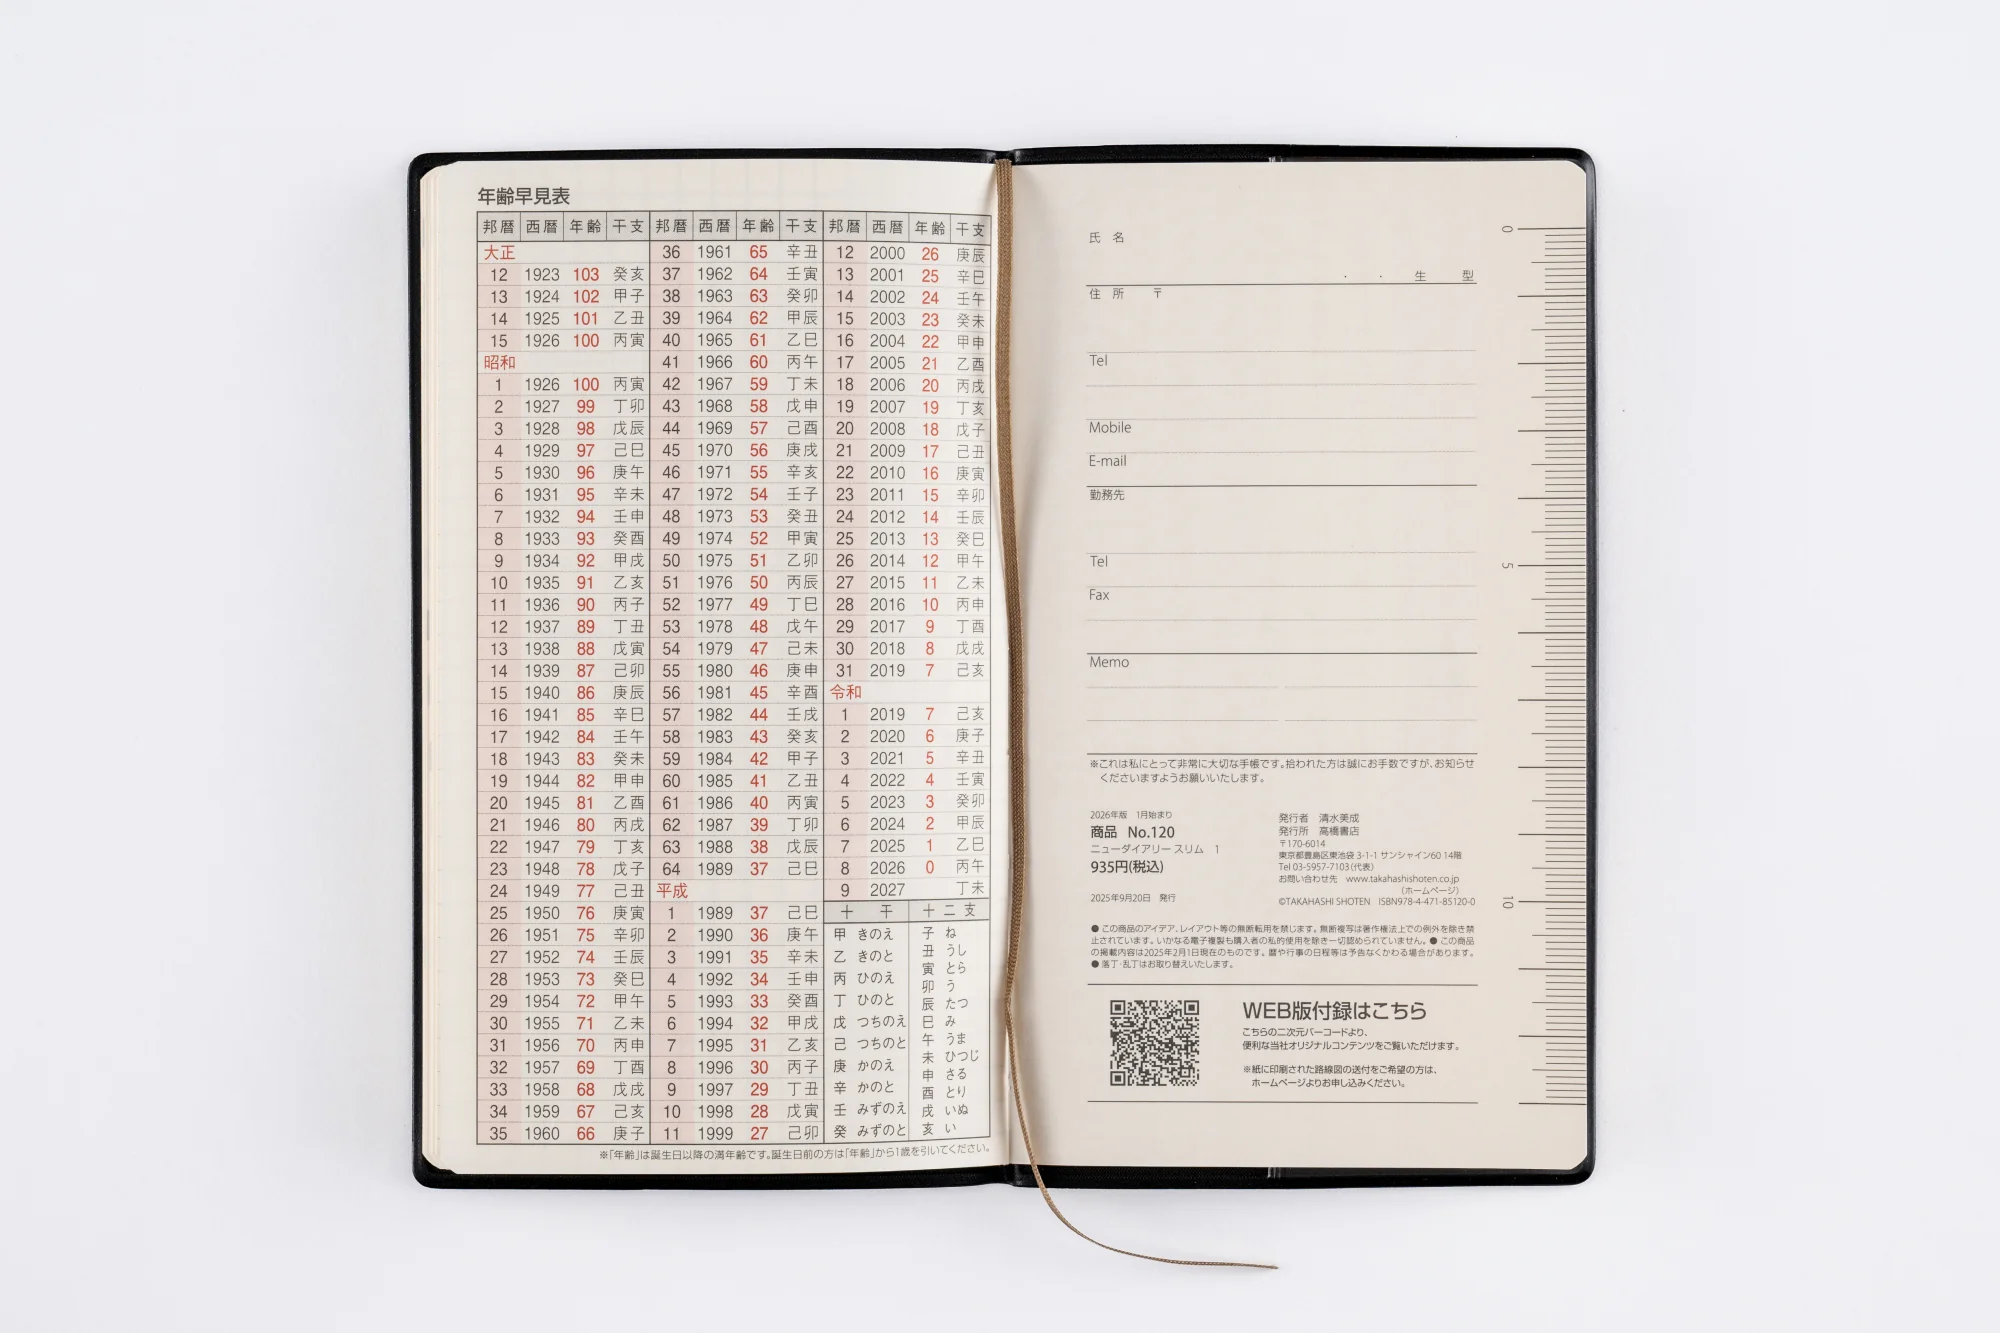 年齢早見表
邦暦 西暦 年齢 干支
大正
12 1923 103 癸亥
13 1924 102 甲子
14 1925 101 乙丑
15 1926 100 丙寅
昭和
1 1926 100 丙寅
2 1927 99 丁卯
3 1928 98 戊辰
4 1929 97 己巳
5 1930 96 庚午
6 1931 95 辛未
7 1932 94 壬申
8 1933 93 癸酉
9 1934 92 甲戌
10 1935 91 乙亥
11 1936 90 丙子
12 1937 89 丁丑
13 1938 88 戊寅
14 1939 87 己卯
15 1940 86 庚辰
16 1941 85 辛巳
17 1942 84 壬午
18 1943 83 癸未
19 1944 82 甲申
20 1945 81 乙酉
21 1946 80 丙戌
22 1947 79 丁亥
23 1948 78 戊子
24 1949 77 己丑
25 1950 76 庚寅
26 1951 75 辛卯
27 1952 74 壬辰
28 1953 73 癸巳
29 1954 72 甲午
30 1955 71 乙未
31 1956 70 丙申
32 1957 69 丁酉
33 1958 68 戊戌
34 1959 67 己亥
35 1960 66 庚子
邦暦 西暦 年齢 干支
36 1961 65 辛丑
37 1962 64 壬寅
38 1963 63 癸卯
39 1964 62 甲辰
40 1965 61 乙巳
41 1966 60 丙午
42 1967 59 丁未
43 1968 58 戊申
44 1969 57 己酉
45 1970 56 庚戌
46 1971 55 辛亥
47 1972 54 壬子
48 1973 53 癸丑
49 1974 52 甲寅
50 1975 51 乙卯
51 1976 50 丙辰
52 1977 49 丁巳
53 1978 48 戊午
54 1979 47 己未
55 1980 46 庚申
56 1981 45 辛酉
57 1982 44 壬戌
58 1983 43 癸亥
59 1984 42 甲子
60 1985 41 乙丑
61 1986 40 丙寅
62 1987 39 丁卯
63 1988 38 戊辰
64 1989 37 己巳
平成
1 1989 37 己巳
2 1990 36 庚午
3 1991 35 辛未
4 1992 34 壬申
5 1993 33 癸酉
6 1994 32 甲戌
7 1995 31 乙亥
8 1996 30 丙子
9 1997 29 丁丑
10 1998 28 戊寅
11 1999 27 己卯
邦暦 西暦 年齢 干支
12 2000 26 庚辰
13 2001 25 辛巳
14 2002 24 壬午
15 2003 23 癸未
16 2004 22 甲申
17 2005 21 乙酉
18 2006 20 丙戌
19 2007 19 丁亥
20 2008 18 戊子
21 2009 17 己丑
22 2010 16 庚寅
23 2011 15 辛卯
24 2012 14 壬辰
25 2013 13 癸巳
26 2014 12 甲午
27 2015 11 乙未
28 2016 10 丙申
29 2017 9 丁酉
30 2018 8 戊戌
31 2019 7 己亥
令和
1 2019 7 己亥
2 2020 6 庚子
3 2021 5 辛丑
4 2022 4 壬寅
5 2023 3 癸卯
6 2024 2 甲辰
7 2025 1 乙巳
8 2026 0 丙午
9 2027 丁未
十干
甲 きのえ
乙 きのと
丙 ひのえ
丁 ひのと
戊 つちのえ
己 つちのと
庚 かのえ
辛 かのと
壬 みずのえ
癸 みずのと
十二支
子 ね
丑 うし
寅 とら
卯 う
辰 たつ
巳 み
午 うま
未 ひつじ
申 さる
酉 とり
戌 いぬ
亥 い
※「年齢」は誕生日以降の満年齢です。誕生日前の方は「年齢」から1歳を引いてください。
氏 名
・ ・ 生 型
住 所 〒
Tel
Mobile
E-mail
勤務先
Tel
Fax
Memo
※これは私にとって非常に大切な手帳です。拾われた方は誠にお手数ですが、お知らせ
くださいますようお願いいたします。
2026年版 1月始まり
商品 No.120
ニューダイアリー スリム 1
935円(税込)
2025年9月20日 発行
発行者 清水美成
発行所 高橋書店
〒170-6014
東京都豊島区東池袋 3-1-1 サンシャイン60 14階
Tel 03-5957-7103 (代表)
お問い合わせ先 www.takahashishoten.co.jp
(ホームページ)
©TAKAHASHI SHOTEN ISBN978-4-471-85120-0
● この商品のアイデア、レイアウト等の無断転用を禁じます。無断複写は著作権法上での例外を除き禁
止されています。いかなる電子複製も購入者の私的使用を除き一切認められていません。● この商品
の掲載内容は2025年2月1日現在のものです。暦や行事の日程等は予告なくかわる場合があります。
● 落丁・乱丁はお取り替えいたします。
WEB版付録はこちら
こちらの二次元バーコードより、
便利な当社オリジナルコンテンツをご覧いただけます。
※紙に印刷された路線図の送付をご希望の方は、
ホームページよりお申し込みください。
0
5
10